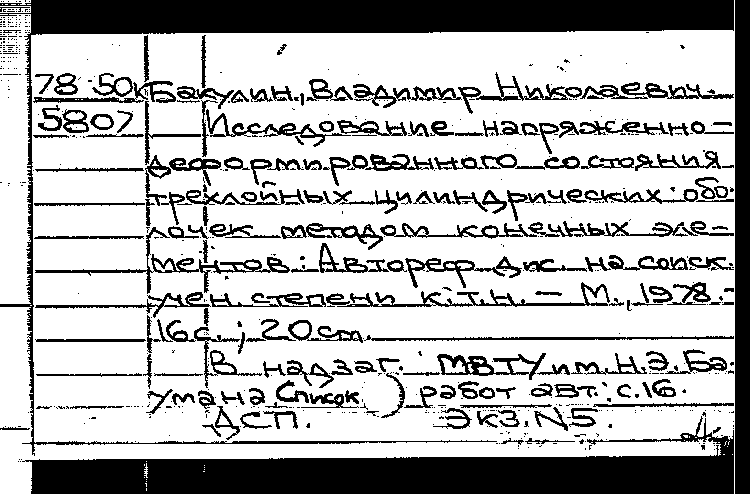 78-50к Бакулин, Владимир Николаевич.
5807 Исследование напряженно-
деформированного состояния
трехлойных цилиндрических обо-
лочек методом конечных эле-
ментов: Автореф дис. на соиск.
учен. степени к.т.н. — М., 1978.-
16с.; 20см.
В надзаг. МВТУ им. Н.Э. Ба-
умана. Список работ авт.: с.16.
ДСП. ЭКЗ.N5.